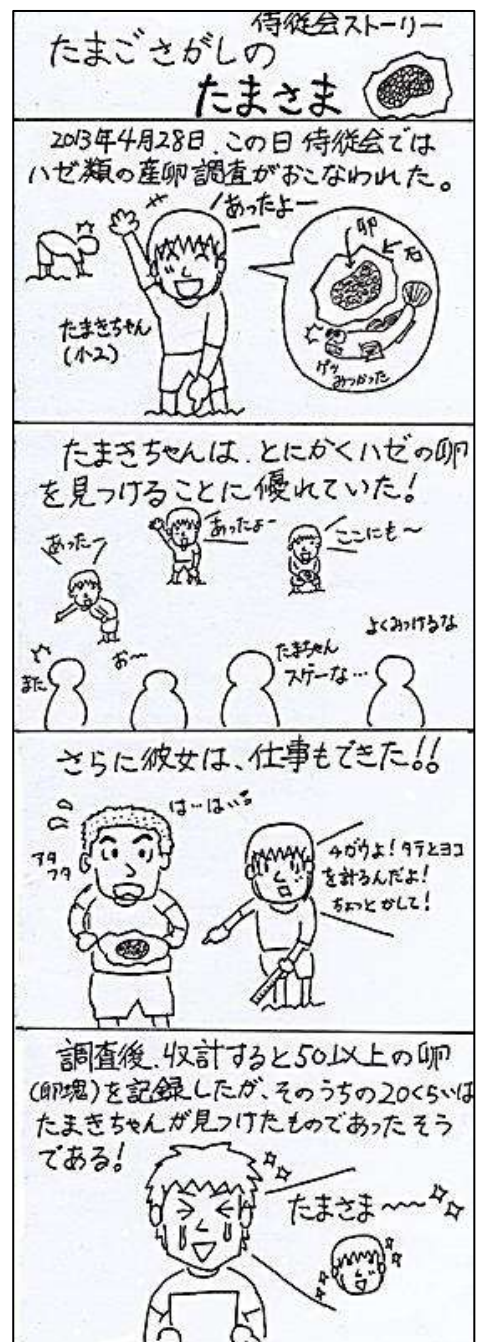 侍従会ストーリー
たまごさがしの
たまさま
2013年4月28日、この日 侍従会では
ハゼ類の産卵調査がおこなわれた。
あったよー
卵
石
たまきちゃん
(小2)
パッ
みつかった
たまきちゃんは、とにかくハゼの卵
を見つけることに優れていた!
あったよー
ここにも〜
あったー
よくみつけるな
また
お〜
たまちゃん
スゲーな…
さらに彼女は、仕事もできた!!
は…はい
アタ
フタ
チガウよ!タテとヨコ
を計るんだよ!
ちょっとかして!
調査後、収計すると50以上の卵
(卵塊)を記録したが、そのうちの20くらいは
たまきちゃんが見つけたものであったそう
である!
たまさま〜〜